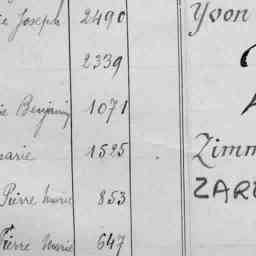 Joseph 2490
2339
Benjamin 1071
marie 1525
Pierre marie 853
Pierre Marie 647
Yvon
Zimm
ZAR